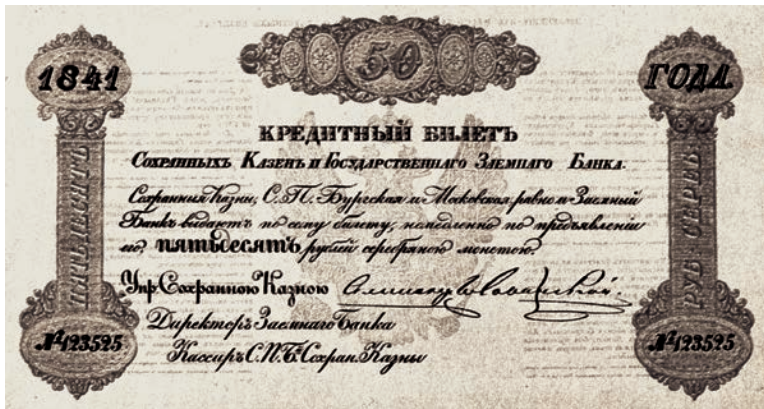 50
1841 ГОДА
КРЕДИТНЫЙ БИЛЕТЪ
СОХРАННЫХЪ КАЗЕНЪ И ГОСУДАРСТВЕННАГО ЗАЕМНАГО БАНКА.
Сохранныя Казны, С.П. Бургская и Московская, равно и Заемный
Банкъ выдаютъ по сему билету, немедленно по предъявленіи
его, пятьдесятъ рублей серебряною монетою.
Упр. Сохранною Казною
Директоръ Заемнаго Банка
Кассиръ С.П.Б. Сохран. Казны
ПЯТЬДЕСЯТЪ
РУБ. СЕРЕБ.
№ 123525
№ 123525